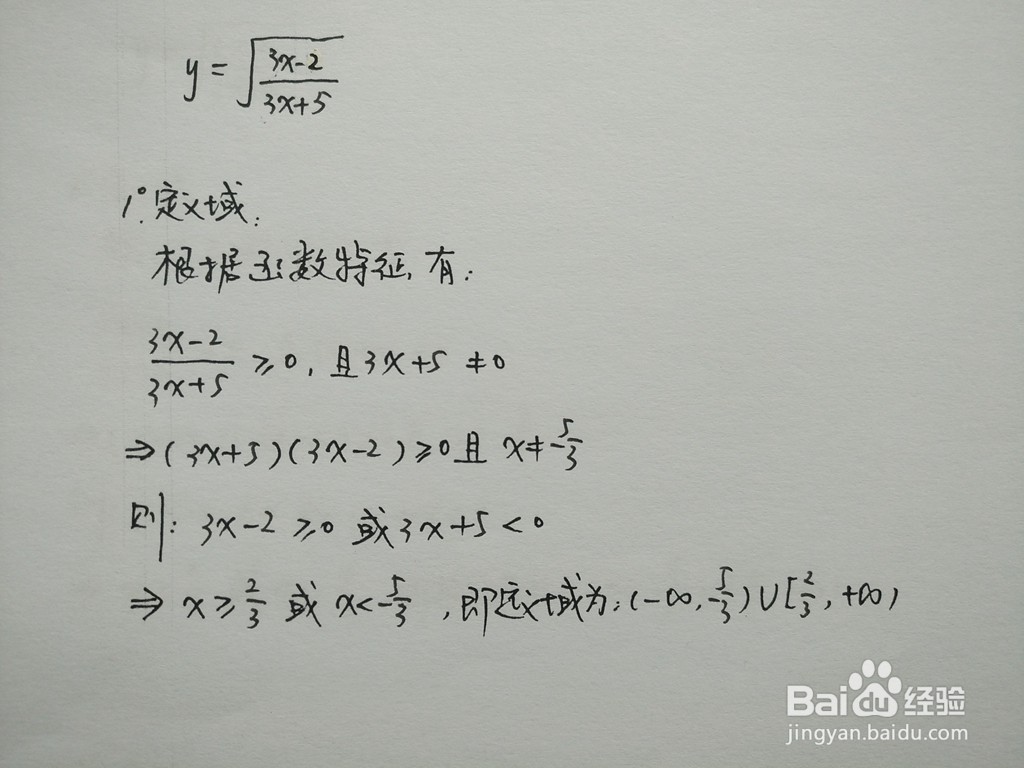 y = √((3x-2)/(3x+5))
1°.定义域:
根据函数特征,有:
(3x-2)/(3x+5) ≥0,且3x+5 ≠0
⇒(3x+5)(3x-2)≥0且 x≠-5/3
则: 3x-2 ≥0 或3x+5<0
⇒ x≥2/3 或 x<-5/3 ,即定义域为:(-∞,-5/3)∪[2/3,+∞)
Bai du 经验
jingyan.baidu.com